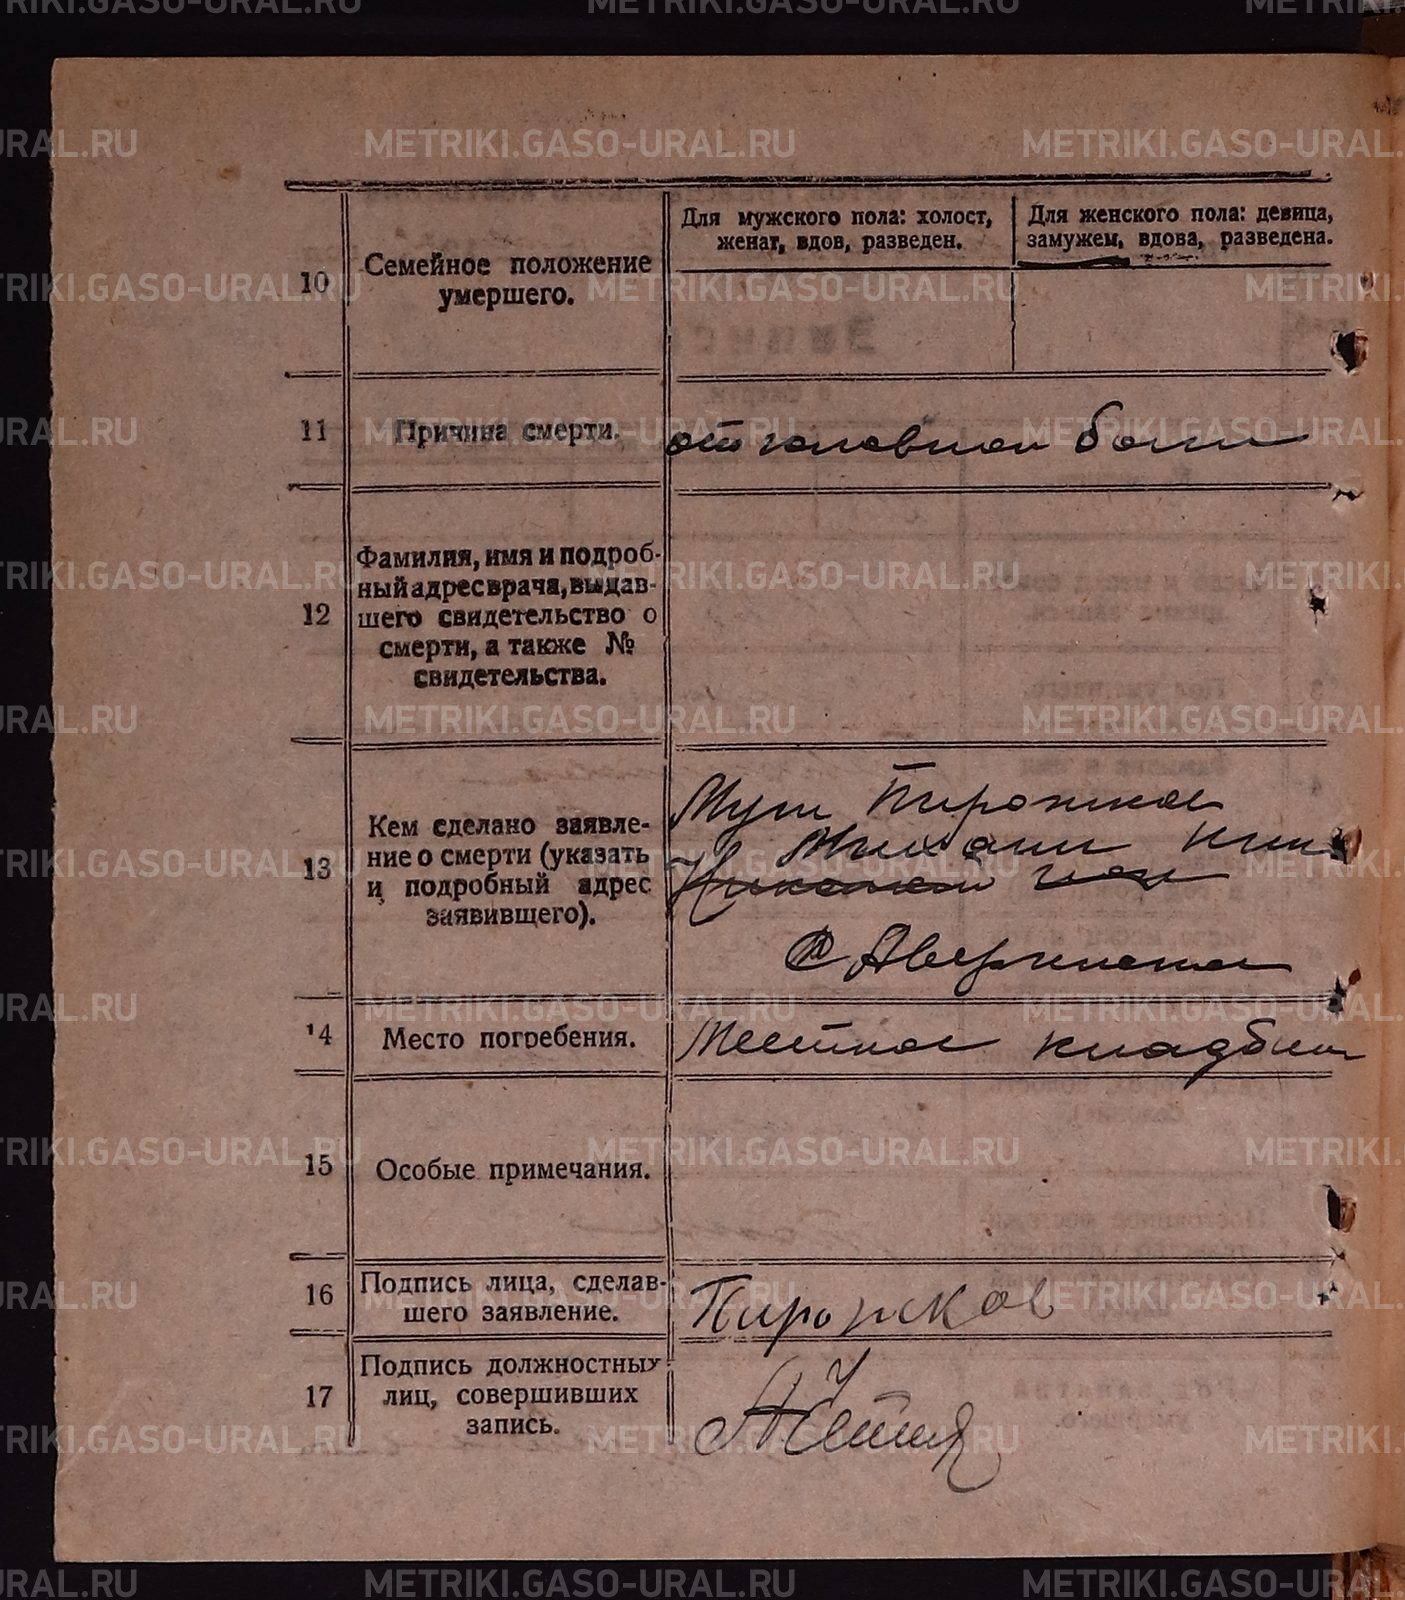 Для мужского пола: холост,
женат, вдов, разведен.
Для женского пола: девица,
замужем, вдова, разведена.
10
Семейное положение
умершего.
11
Причина смерти.
от головной боли
12
Фамилия, имя и подроб-
ный адрес врача, выдав-
шего свидетельство о
смерти, а также №
свидетельства.
13
Кем сделано заявле-
ние о смерти (указать
и подробный адрес
заявившего).
Муж Пирожков
Михаил Ник
С Аверинское
14
Место погребения.
Местное кладбищ
15
Особые примечания.
16
Подпись лица, сделав-
шего заявление.
Пирожков
17
Подпись должностных
лиц, совершивших
запись.
METRIKI.GASO-URAL.RU